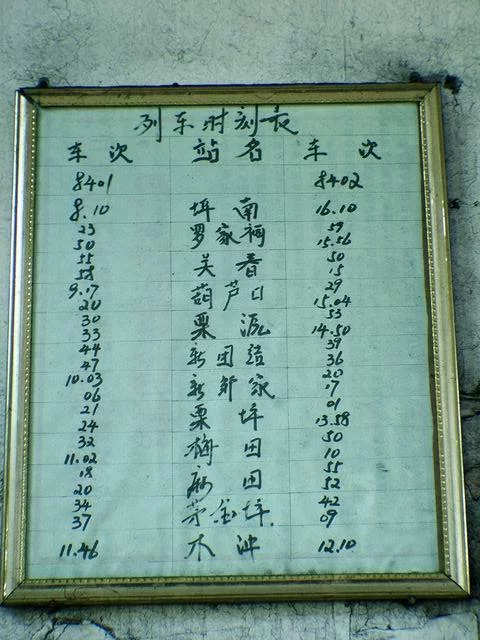 列车时刻表
车次 站名 车次
8401 8402
8.10 坪南 16.10
23 罗家 59
50 15.56
55 关 50
58 15
9.17 葫芦口 29
20 15.04
30 栗源 53
33 14.50
44 新团 39
47 36
10.03 新 家 20
06 17
21 栗坪 01
24 13.58
32 梅田 50
11.02 10
18 麻田 55
20 52
34 茅金坪 42
37 09
11.46 木冲 12.10